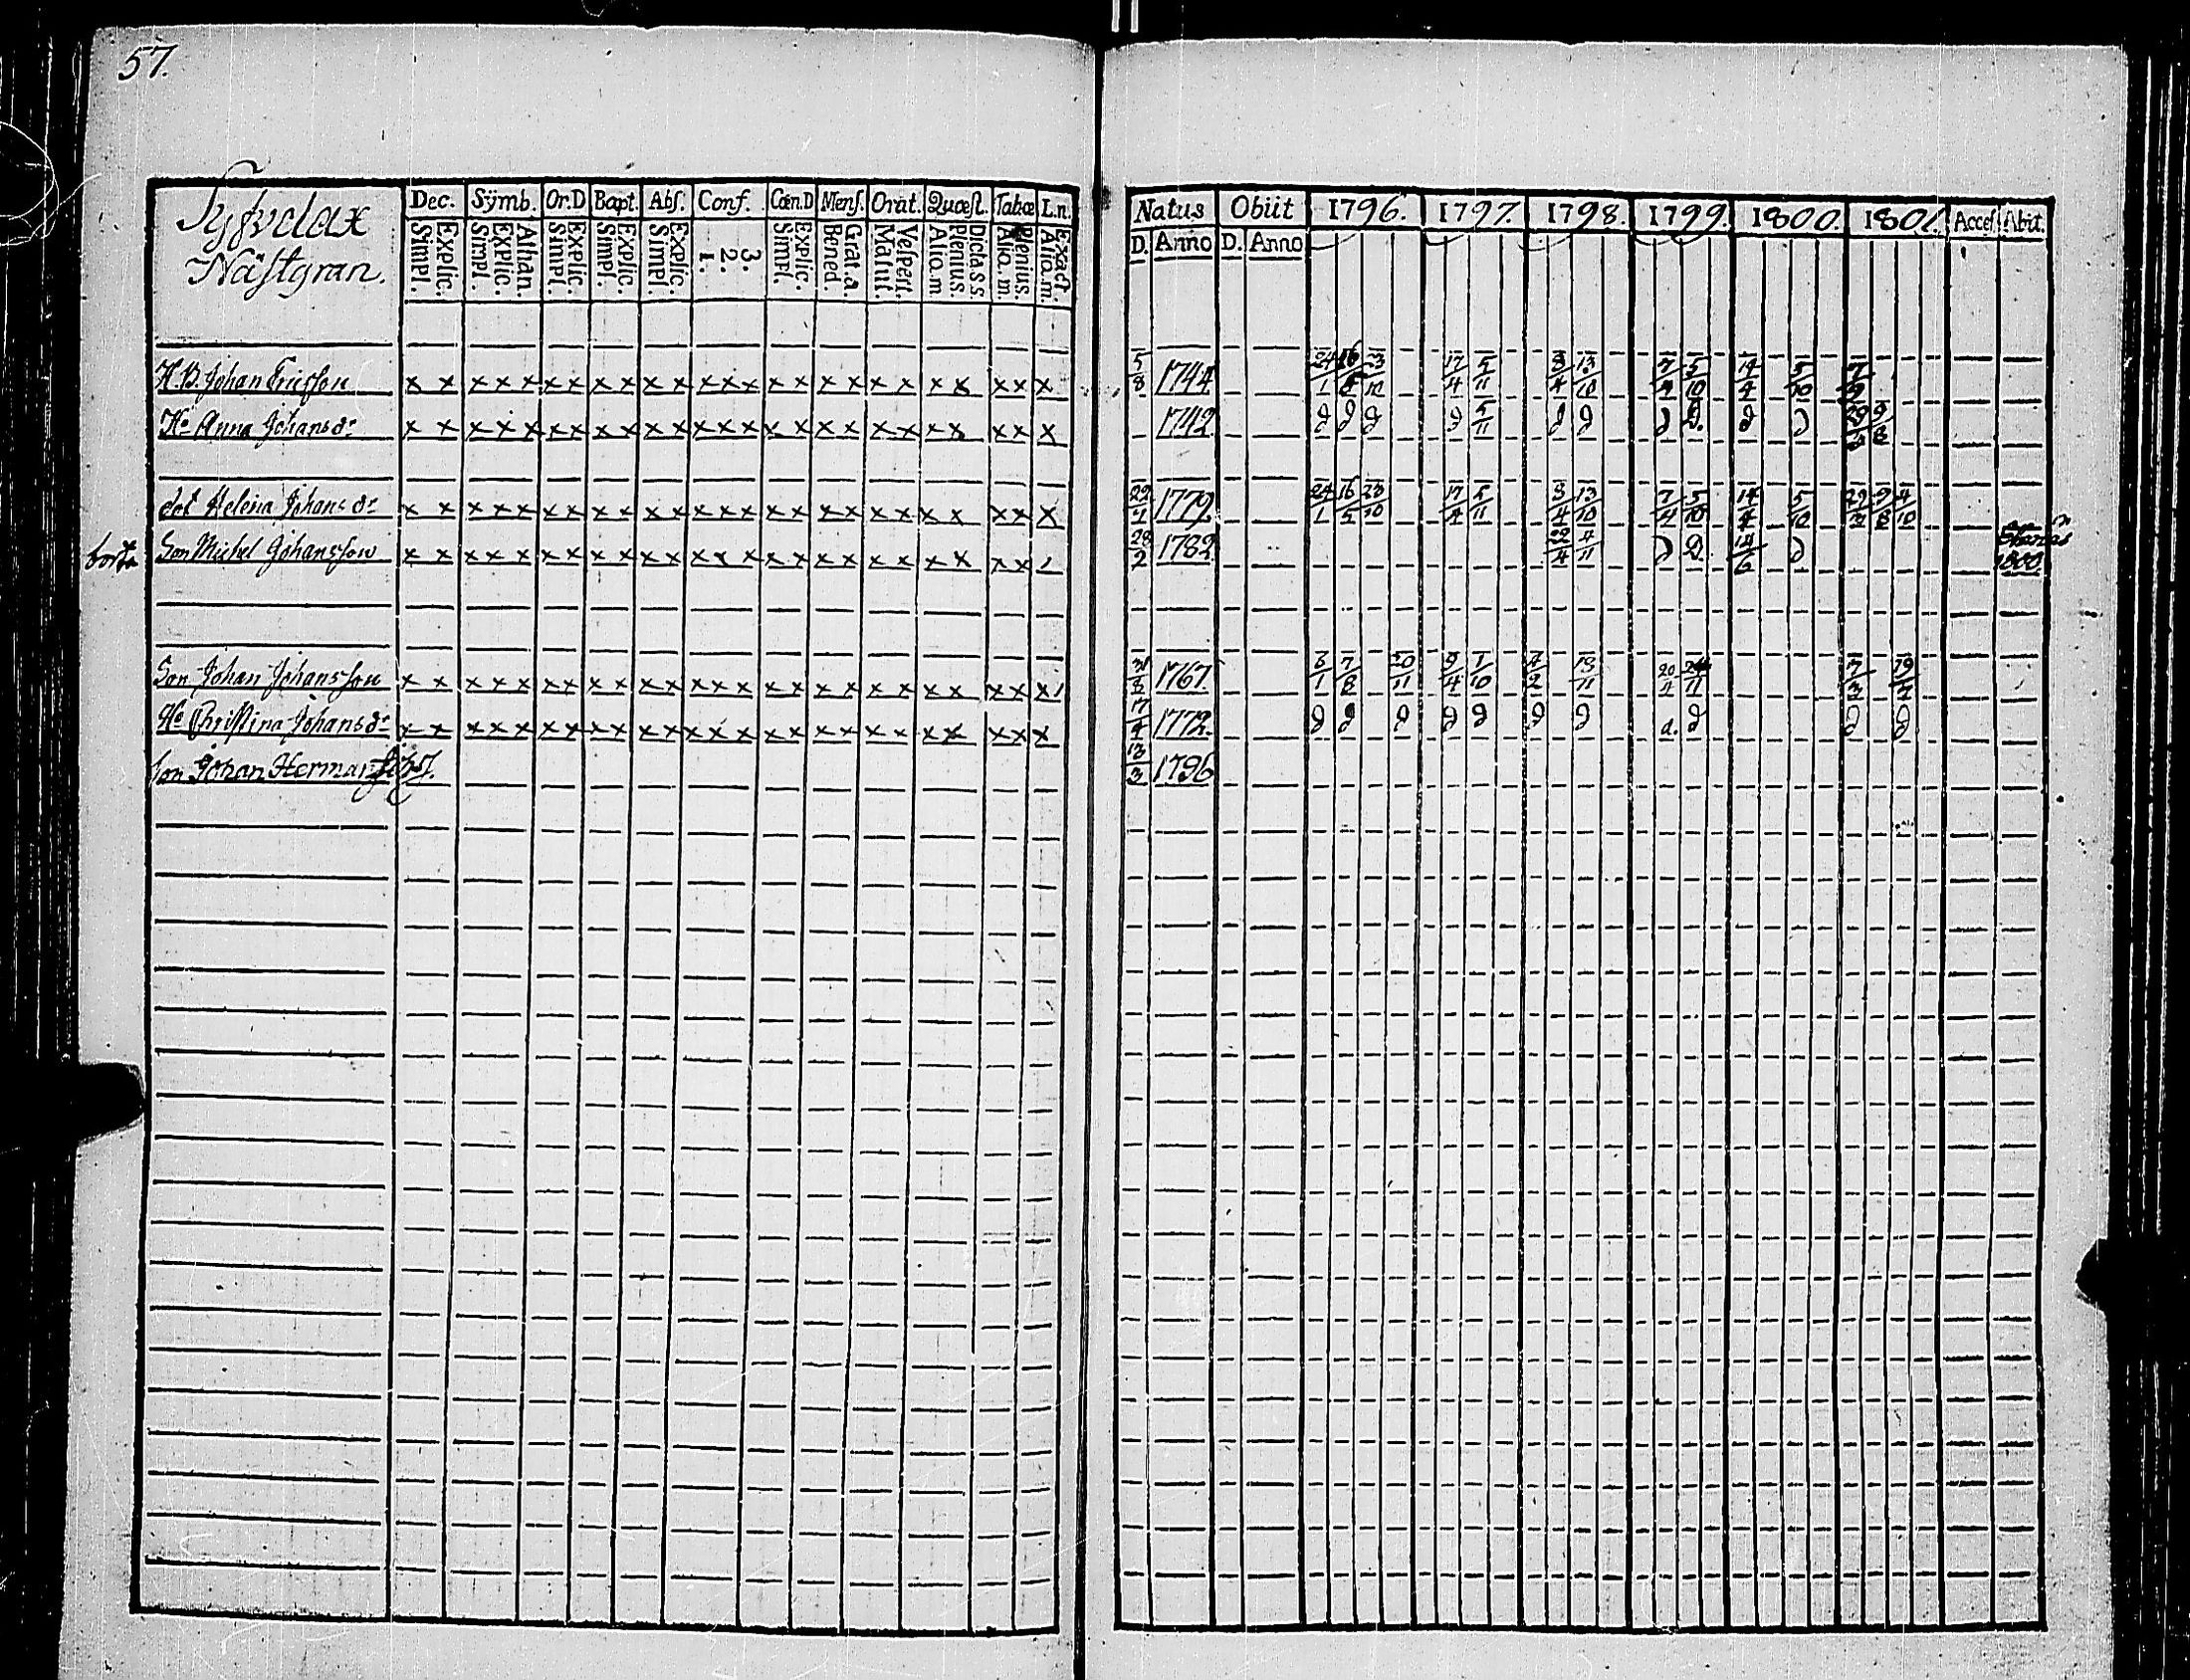 57.
Dec. Sÿmb. Or.D Bapt. Abſ. Conf. Cœn.D Menſ. Orat. Quæſt. Tabœ L.n.
Näſtgran.
Explic. Simpl. Athan. Explic. Simpl. Explic. Simpl. Explic. Simpl. Explic. Simpl. 3. 2. 1. Explic. Simpl. Grat.a. Bened. Veſpert. Matut. Dicta s.s. Plenius. Alio.m Plenius. Alio.m. Exact. Alio.m.
Natus Obiit 1796. 1797. 1798. 1799. 1800. 1801. Acceſ. Abiit.
D. Anno D. Anno
H.B. Johan Ericſſon x x x x x x x x x x x x x x x x x x x x x x x x x 5/8 1744 24/1 16/5 23/10 17/4 5/11 3/4 13/10 7/4 5/10 14/4 5/10
Hu Anna Johansdr x x x x x x x x x x x x x x x x x x x x x x x x x 1742 d d d d 5/11 d d d d d d 29/3 9/8
dot Helena Johansdr x x x x x x x x x x x x x x x x x x x x x x x x x 1779 24/1 16/5 23/10 17/4 5/11 3/4 13/10 7/4 5/10 14/4 5/10 29/3 9/8 4/10
borta Son Michel Johansſon x x x x x x x x x x x x x x x x x x x x x x x x 28/2 1782 22/4 4/11 d d 14/6 d 1800.
Son Johan Johansſon x x x x x x x x x x x x x x x x x x x x x x x x x 31/8 1767 6/1 7/8 20/11 9/4 1/10 4/2 18/11 20/4 24/11 7/3
Hu Chriſtina Johansdr x x x x x x x x x x x x x x x x x x x x x x x x x 17/4 1772 d d d d d d d d. d d d
Son Johan Herman 13/3 1796